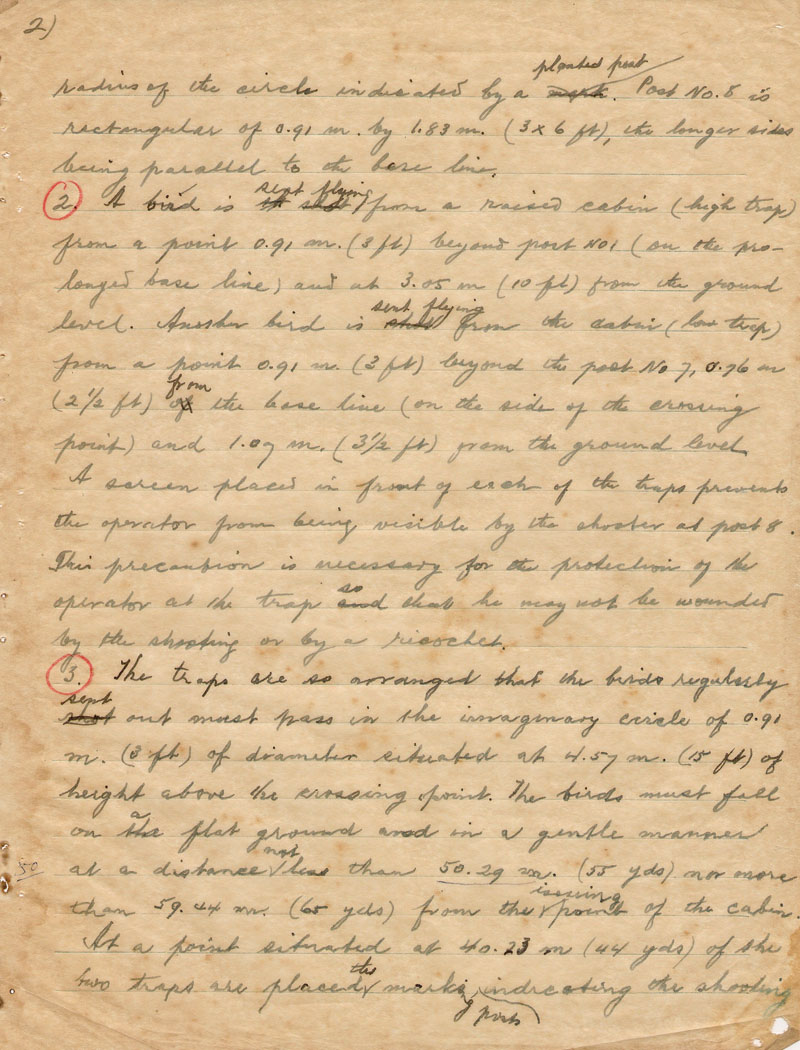 2)
planted post
radius of the circle indicated by a mark. Post No. 8 is
rectangular of 0.91 m. by 1.83 m. (3 x 6 ft), the longer sides
being parallel to the base line.
sent flying
2. A bird is from a raised cabin (high trap)
from a point 0.91 m. (3 ft) beyond post No 1 (on the pro-
longed base line) and at 3.05 m (10 ft) from the ground
sent flying
level. Another bird is shot from the cabin (low trap)
from a point 0.91 m. (3 ft) beyond the post No 7, 0.76 m
from
(2 1/2 ft) of the base line (on the side of the crossing
point) and 1.07 m. (3 1/2 ft) from the ground level
A screen placed in front of each of the traps prevents
the operator from being visible by the shooter at post 8.
This precaution is necessary for the protection of the
so
operator at the trap and that he may not be wounded
by the shooting or by a ricochet.
3. The traps are so arranged that the birds regularly
sent
shot out must pass in the imaginary circle of 0.91
m. (3 ft) of diameter situated at 4.57 m. (15 ft) of
height above the crossing point. The birds must fall
a
on the flat ground and in a gentle manner
not
50 at a distance less than 50.29 m. (55 yds) nor more
issuing
than 59.44 m. (65 yds) from the point of the cabin.
At a point situated at 40.23 m (44 yds) of the
the
two traps are placed marking indicating the shooting
posts